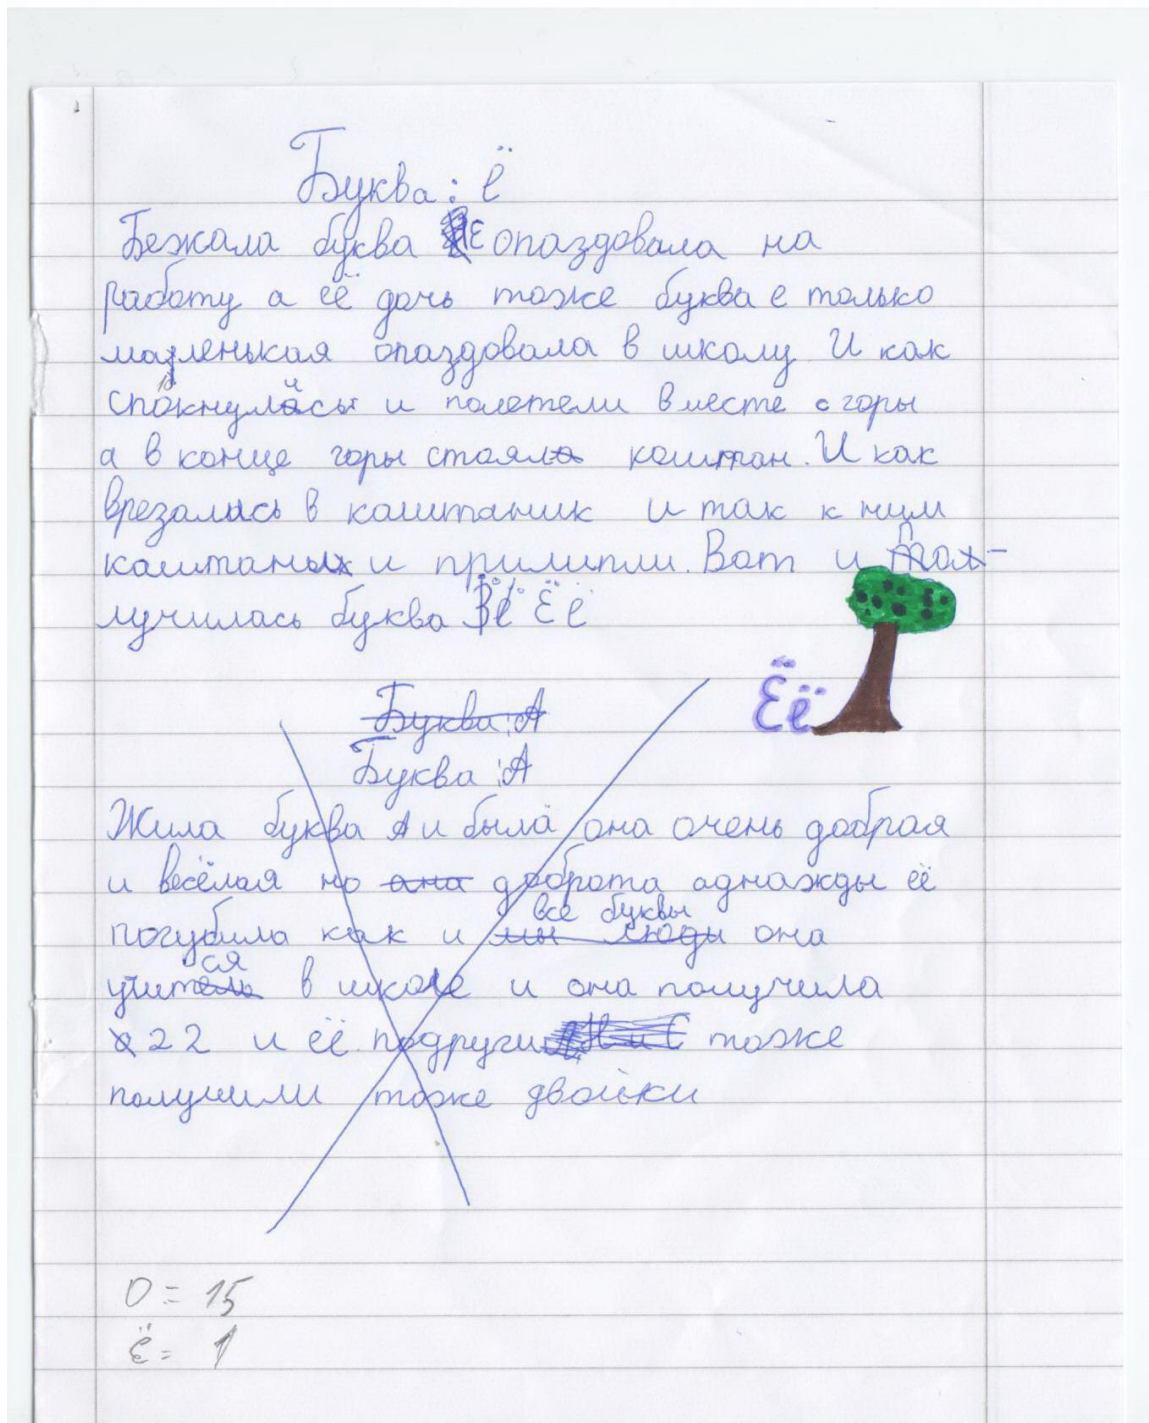 Буква: ё
Бежала буква Е опаздовала на
работу а её дочь тоже буква е только
маленькая опаздовала в школу. И как
спокнулись и полетели вместе с горы
а в конце горы стоял каштан. И как
врезались в каштаник и так к ним
каштаны и прилипли. Вот и по-
лучилась буква Ё ё
Ёё
Буква: А
Буква: А
Жила буква А и была она очень добрая
и весёлая но она доброта однажды её
все буквы
погубила как и мы люды она
ся
учитель в школе и она получила
22 и её подруги А Н и С тоже
получили тоже двойки
О = 15
Ё = 1